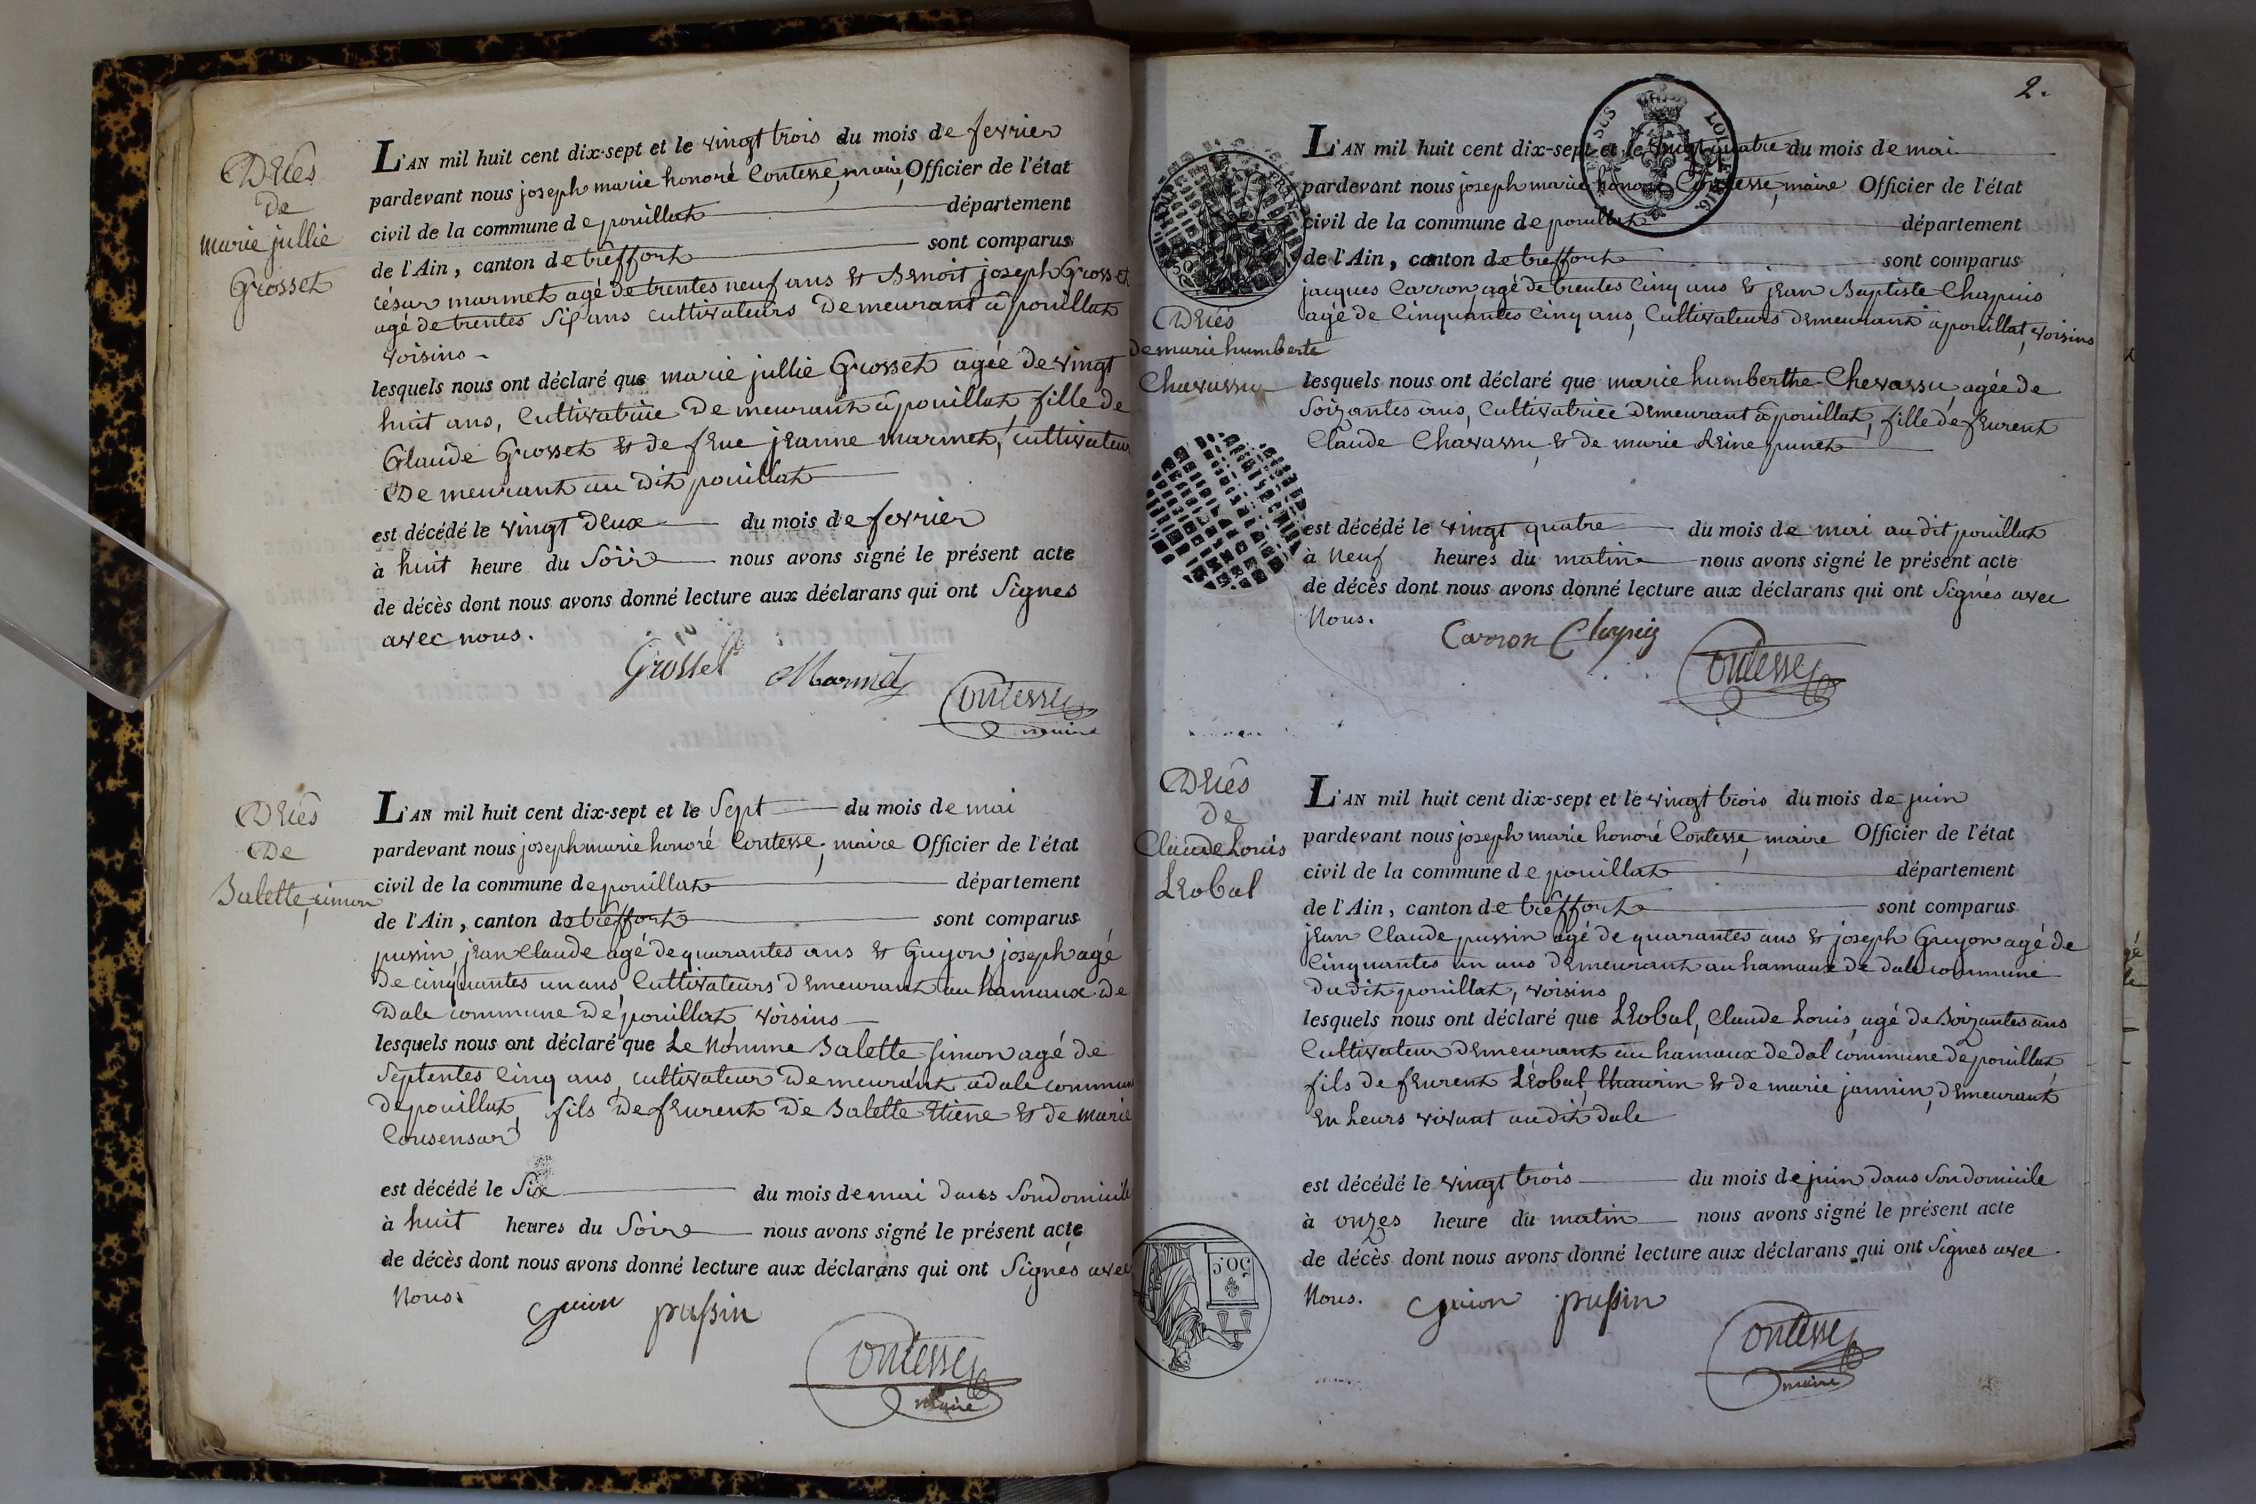 Décès
de
marie jullie
Grosset
L'AN mil huit cent dix-sept et le vingt trois du mois de fevrier
pardevant nous joseph marie honoré Contesse, maire, Officier de l'état
civil de la commune de pouillat département
de l'Ain, canton de treffort sont comparus
césar marmet agé de trentes neuf ans et Benoit joseph Grosset
agé de trentes six ans cultivateurs demeurant à pouillat
voisins
lesquels nous ont déclaré que marie jullie Grosset agée de vingt
huit ans, Cultivatrice demeurant à pouillat fille de
Claude Grosset et de feue jeanne marmet, cultivateur
demeurant au dit pouillat
est décédé le vingt deux du mois de fevrier
à huit heure du Soire nous avons signé le présent acte
de décès dont nous avons donné lecture aux déclarans qui ont Signés
avec nous.
Grosset Marmet
Contesse
maire
Décès
De
Balette, simon
L'AN mil huit cent dix-sept et le Sept du mois de mai
pardevant nous joseph marie honoré Contesse, maire Officier de l'état
civil de la commune de pouillat département
de l'Ain, canton de treffort sont comparus
pussin jean claude agé de quarantes ans et Guyon joseph agé
de cinquantes un ans Cultivateurs demeurant au hamaux de
Dale commune de pouillat voisins
lesquels nous ont déclaré que Le Nomme Balette simon agé de
Septentes Cinq ans, cultivateur demeurant a dale commune
de pouillat, fils de feurent de Balette Etiene et de marie
est décédé le Six du mois de mai dans Son domicile
à huit heures du Soire nous avons signé le présent acte
de décès dont nous avons donné lecture aux déclarans qui ont Signés avec
Nous.
Guion pussin
Contesse
maire
2.
Décés
de marie humberte
Chavassu
L'AN mil huit cent dix-sept et le vingt quatre du mois de mai
pardevant nous joseph marie honoré Contesse, maire Officier de l'état
civil de la commune de pouillat département
de l'Ain, canton de treffort sont comparus
jacques Carron, agé de trentes Cinq ans et jean Baptiste Chapuis
agé de Cinquantes Cinq ans, Cultivateurs demeurant à pouillat, voisins
lesquels nous ont déclaré que marie humberthe Chevassu, agée de
Soixantes ans, Cultivatrice demeurant à pouillat, fille de feurent
Claude Chavassu, et de marie Reine punet
est décédé le vingt quatre du mois de mai au dit pouillat
à Neuf heures du matin nous avons signé le présent acte
de décès dont nous avons donné lecture aux déclarans qui ont Signés avec
Nous.
Carron Chapuis
Contesse
Décés
De
Claude Louis
Léobal
L'AN mil huit cent dix-sept et le vingt trois du mois de juin
pardevant nous joseph marie honoré Contesse, maire Officier de l'état
civil de la commune de pouillat département
de l'Ain, canton de treffort sont comparus
jean Claude pussin agé de quarantes ans et joseph Guyon agé de
Cinquantes un ans demeurant au hamaux de dale commune
du dit pouillat, voisins
lesquels nous ont déclaré que Léobal, Claude Louis, agé de Soixantes ans
Cultivateur demeurant au hamaux de dal commune de pouillat
fils de feurent Léobal, thaurin et de marie jannin, demeurant
En heurs vivant au dit dale
est décédé le vingt trois du mois de juin dans Son domicile
à onzes heure du matin nous avons signé le présent acte
de décès dont nous avons donné lecture aux déclarans qui ont Signes avec
Nous.
Guion pussin
Contesse
maire
50.C